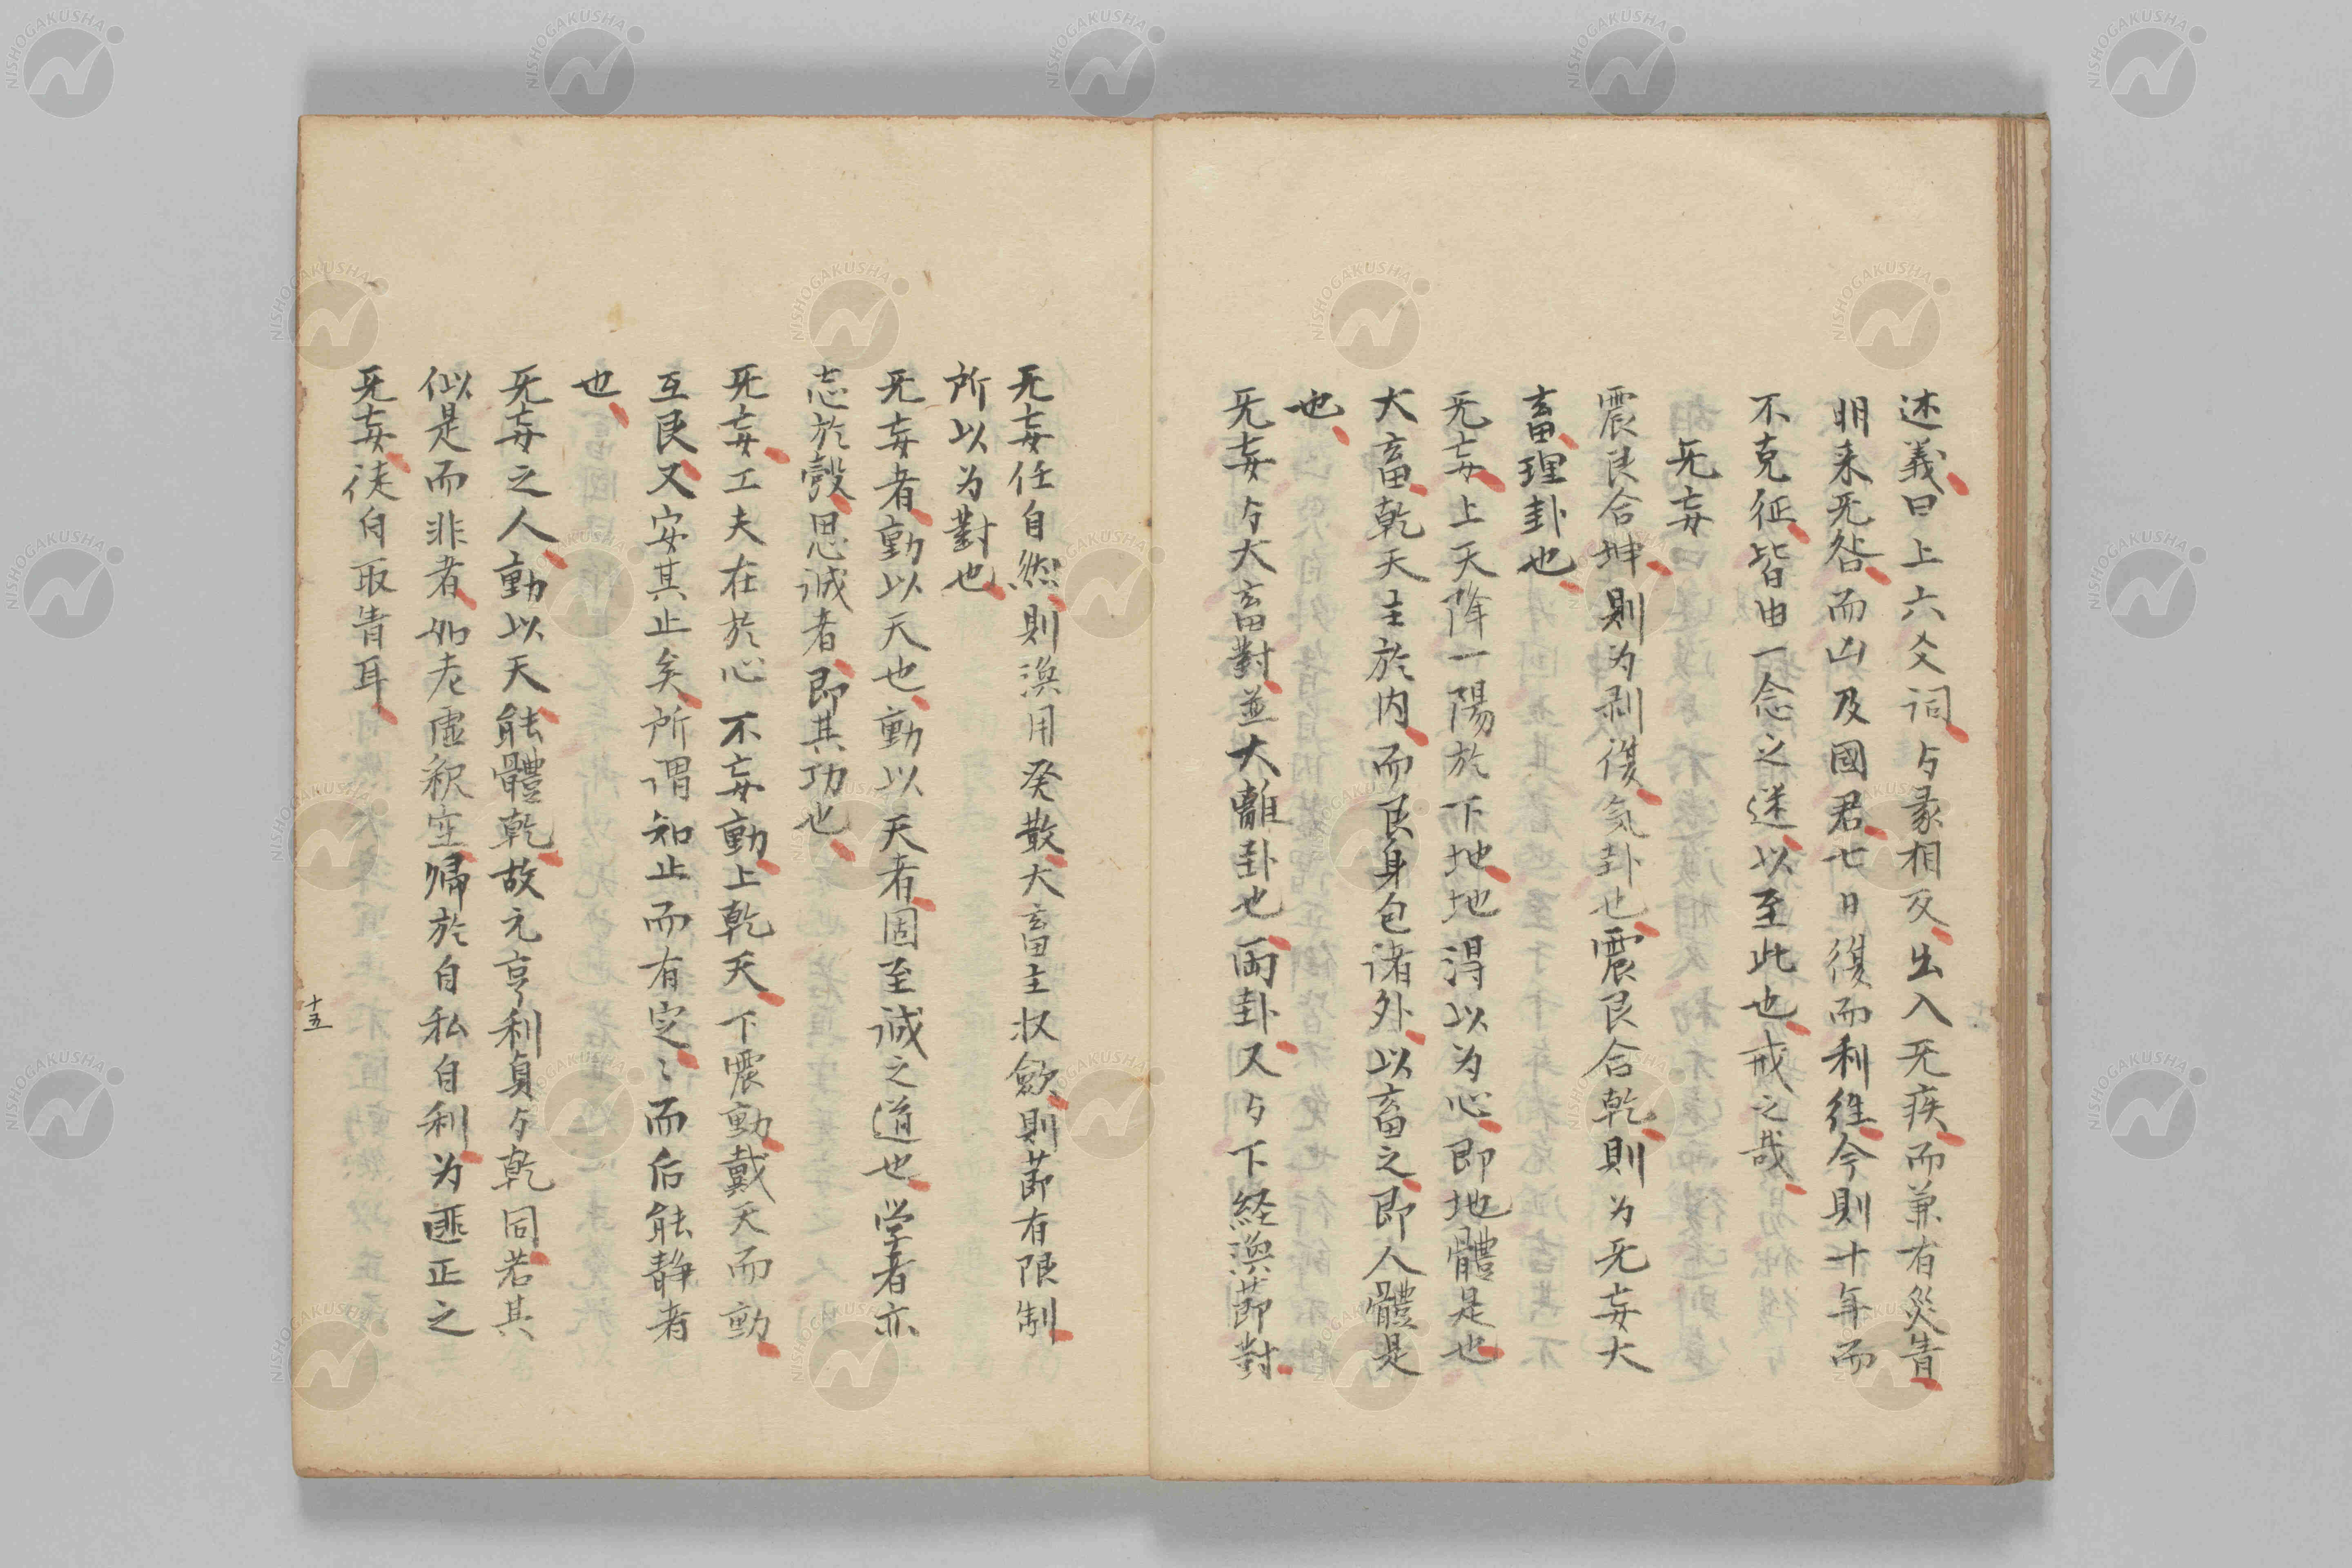 述義曰上六爻詞与彖相反出入无疾而兼有災眚
朋来无咎而凶及國君七日復而利往今則十年而
不克征皆由一念之迷以至此也戒之哉
无妄
震艮合坤則为剥復気卦也震艮合乾則为无妄大
畜理卦也
无妄上天降一陽於下地地得以为心即地體是也
大畜乾天主於内而艮身包諸外以畜之即人體是
也
无妄与大畜對並大離卦也両卦又与下経渙節對
无妄任自然則渙用発散大畜主収斂則節有限制
所以为對也
无妄者動以天也動以天者固至誠之道也学者亦
志於彀思誠者即其功也
无妄工夫在於心不妄動上乾天下震動戴天而動
互艮又安其止矣所謂知止而有定〻而后能静者
也
无妄之人動以天能體乾故元亨利貞与乾同若其
似是而非者如老虚釈空帰於自私自利为匪正之
无妄徒自取眚耳
十五
NISHOGAKUSHA